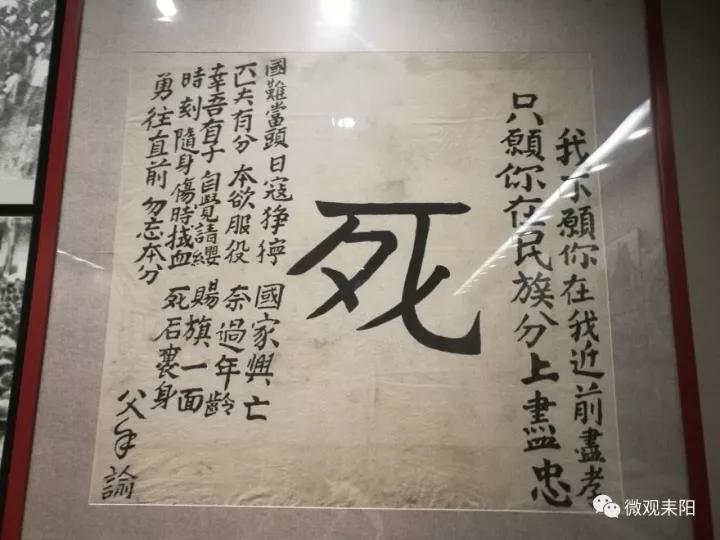 我不願你在我近前盡孝
只願你在民族分上盡忠
死
國難當頭 日寇猙獰 國家興亡
匹夫有分 本欲服役 奈過年齡
幸吾有子 自覺請纓 賜旗一面
時刻隨身 傷時拭血 死后裹身
勇往直前 勿忘本分
父手諭
微观耒阳